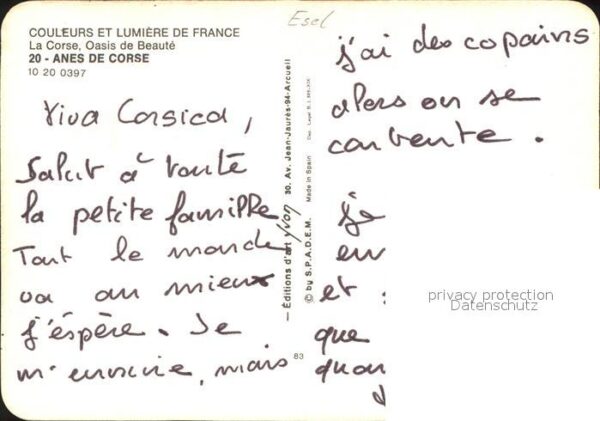 COULEURS ET LUMIÈRE DE FRANCE
La Corse, Oasis de Beauté
20 - ANES DE CORSE
10 20 0397
Viva Corsica,
Salut à toute
la petite famille
Tout le monde
va au mieux
j'éspère. Je
m'ennuie, mais
Esel
— Éditions d'art Yvon 30. Av. Jean-Jaurès-94-Arcueil
© by S.P.A.D.E.M. Made in Spain
83
j'ai des copains
alors on se
contente.
je
en
et
que
quan
privacy protection
Datenschutz